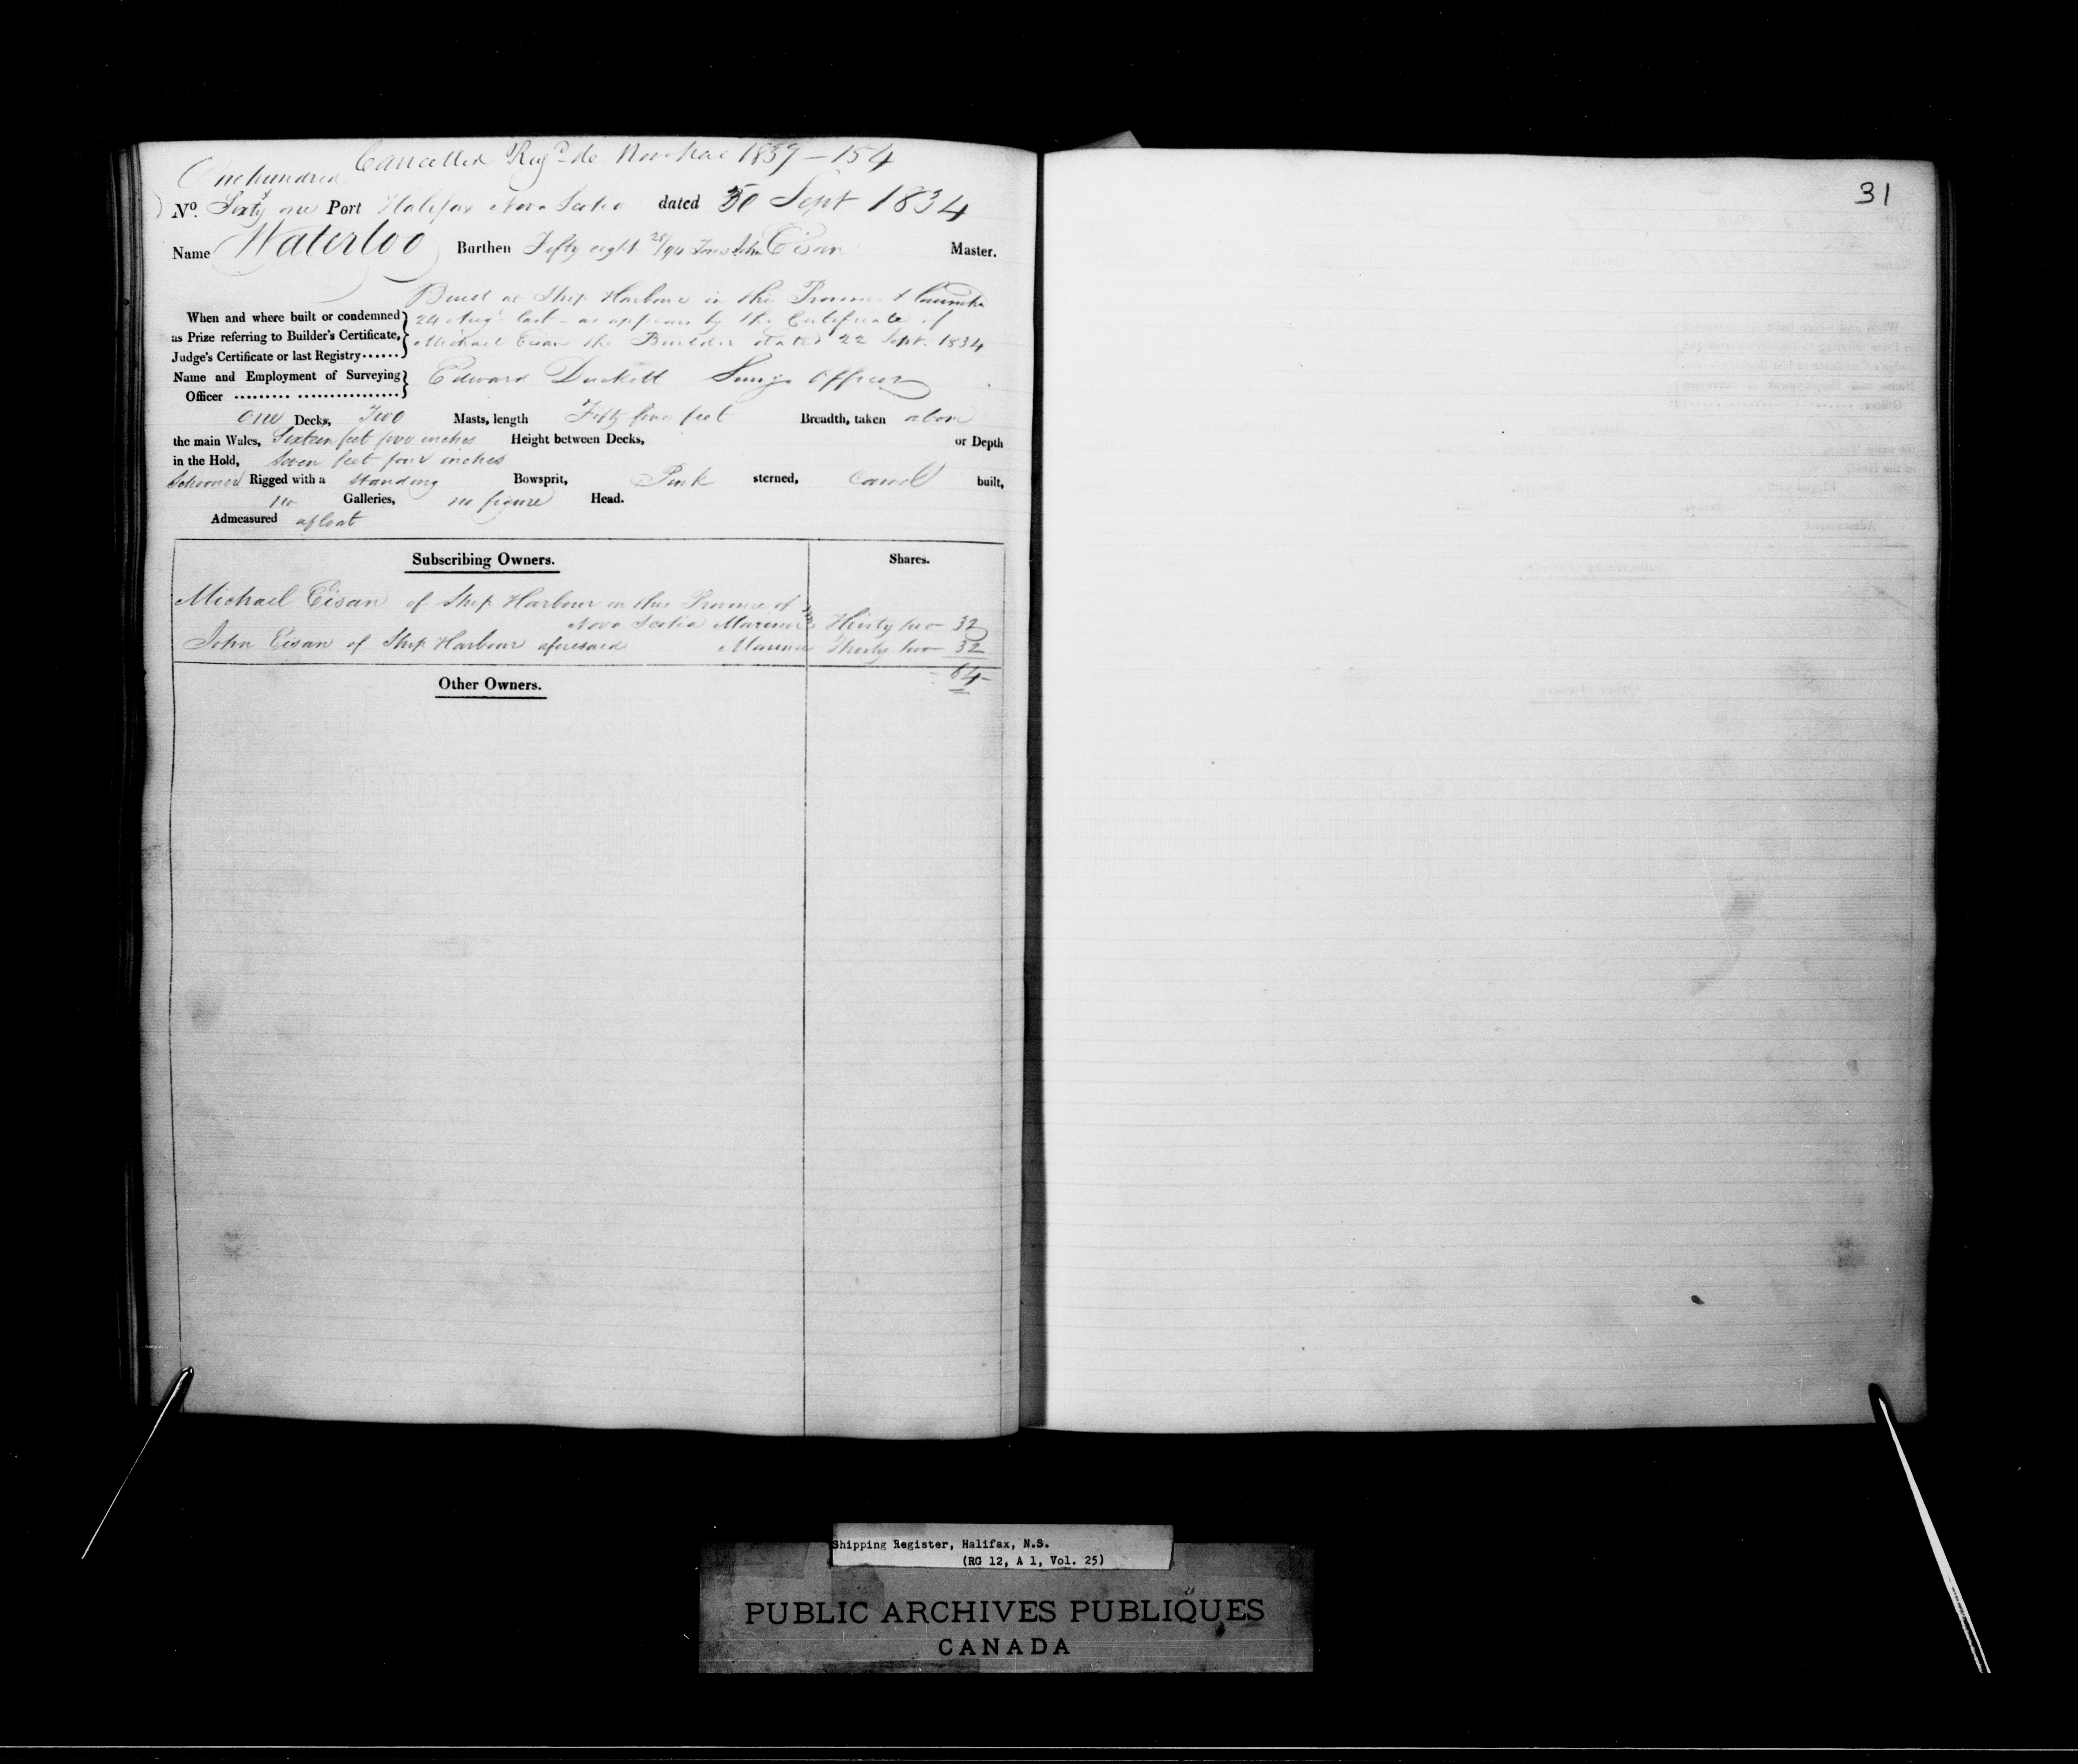 Cancelled Reg.d de Novo Hac 1839 - 154
One hundred
No. Sixty one Port Halifax Nova Scotia dated 30 Sept 1834
Name Waterloo Burthen Fifty eight 28/94 Tons John Eisan Master.
Built at Ship Harbour in this Province & launched
When and where built or condemned 24 Augt last - as appears by the Certificate of
as Prize referring to Builder's Certificate, Michael Eisan the Builder dated 22 Sept. 1834
Judge's Certificate or last Registry......
Name and Employment of Surveying Edward Duckett Survg Officer
Officer ......... ................
One Decks, Two Masts, length Fifty five feet Breadth, taken above
the main Wales, Sixteen feet two inches Height between Decks, or Depth
in the Hold, Seven feet four inches
Schooner Rigged with a Standing Bowsprit, Pink sterned, Carvel built,
no Galleries, no figure Head.
Admeasured afloat
Subscribing Owners. Shares.
Michael Eisan of Ship Harbour in this Province of
Nova Scotia Mariner Thirty two 32
John Eisan of Ship Harbour aforesaid Mariner Thirty two 32
64
Other Owners.
31
Shipping Register, Halifax, N.S.
(RG 12, A 1, Vol. 25)
PUBLIC ARCHIVES PUBLIQUES
CANADA